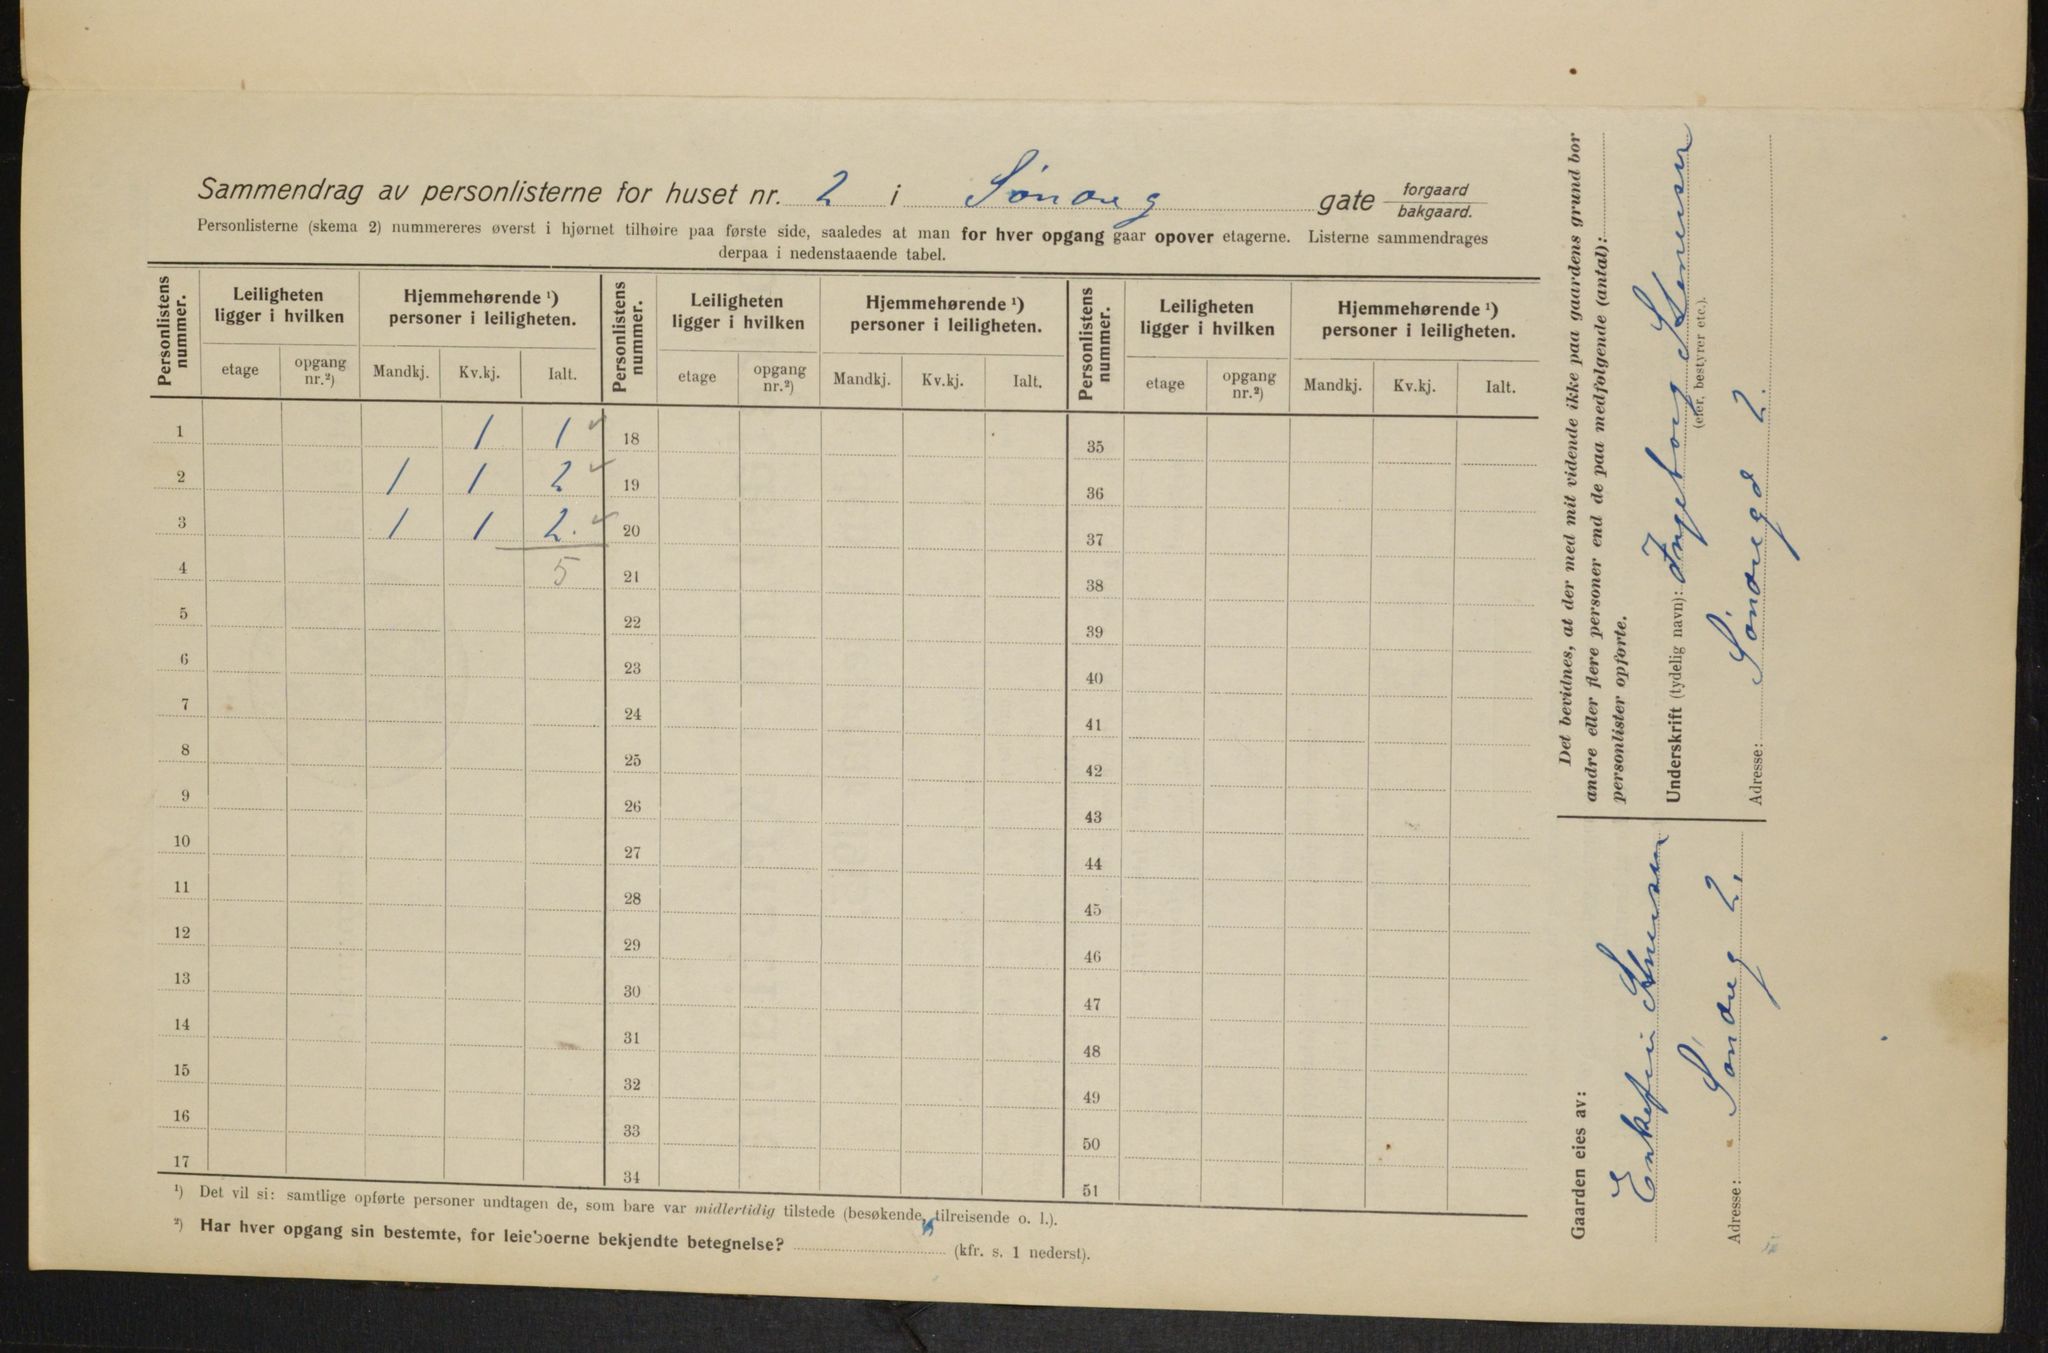 Sammendrag av personlisterne for huset nr. 2 i Søndre g gate forgaard bakgaard.
Personlisterne (skema 2) nummereres øverst i hjørnet tilhøire paa første side, saaledes at man for hver opgang gaar opover etagerne. Listerne sammendrages
derpaa i nedenstaaende tabel.
Personlistens nummer. Leiligheten ligger i hvilken Hjemmehørende ¹) personer i leiligheten. Personlistens nummer. Leiligheten ligger i hvilken Hjemmehørende ¹) personer i leiligheten. Personlistens nummer. Leiligheten ligger i hvilken Hjemmehørende ¹) personer i leiligheten.
etage opgang nr.²) Mandkj. Kv.kj. Ialt. etage opgang nr.²) Mandkj. Kv.kj. Ialt. etage opgang nr.²) Mandkj. Kv.kj. Ialt.
1 1 1 18 35
2 1 1 2 19 36
3 1 1 2. 20 37
4 5 21 38
5 22 39
6 23 40
7 24 41
8 25 42
9 26 43
10 27 44
11 28 45
12 29 46
13 30 47
14 31 48
15 32 49
16 33 50
17 34 51
¹) Det vil si: samtlige opførte personer undtagen de, som bare var midlertidig tilstede (besøkende, tilreisende o. l.).
²) Har hver opgang sin bestemte, for leieboerne bekjendte betegnelse? (kfr. s. 1 nederst).
Det bevidnes, at der med mit vidende ikke paa gaardens grund bor
andre eller flere personer end de paa medfølgende (antal):
personlister opførte.
Underskrift (tydelig navn): Ingeborg
(eier, bestyrer etc.).
Adresse: Søndregd 2.
Gaarden eies av:
Adresse: Søndre g 2.